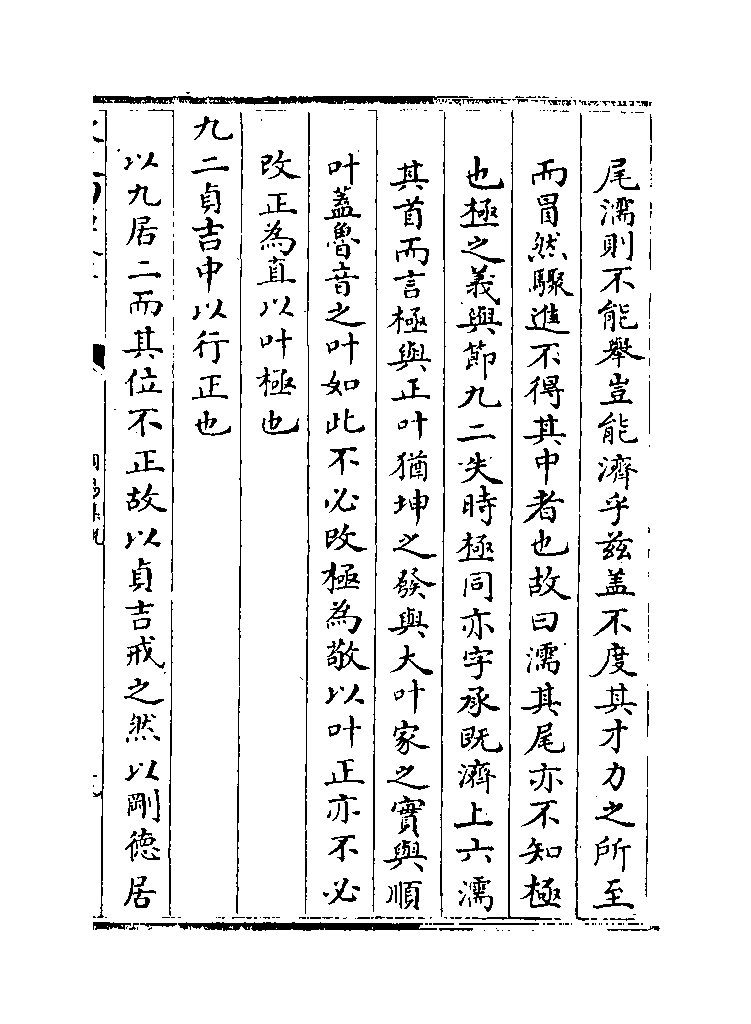 尾濡則不能舉豈能濟乎兹盖不度其才力之所至
而冒然驟進不得其中者也故曰濡其尾亦不知極
也極之義與節九二失時極同亦字承既濟上六濡
其首而言極與正叶猶坤之發與大叶家之實與順
叶蓋魯音之叶如此不必改極為敬以叶正亦不必
改正為直以叶極也
九二貞吉中以行正也
以九居二而其位不正故以貞吉戒之然以剛徳居